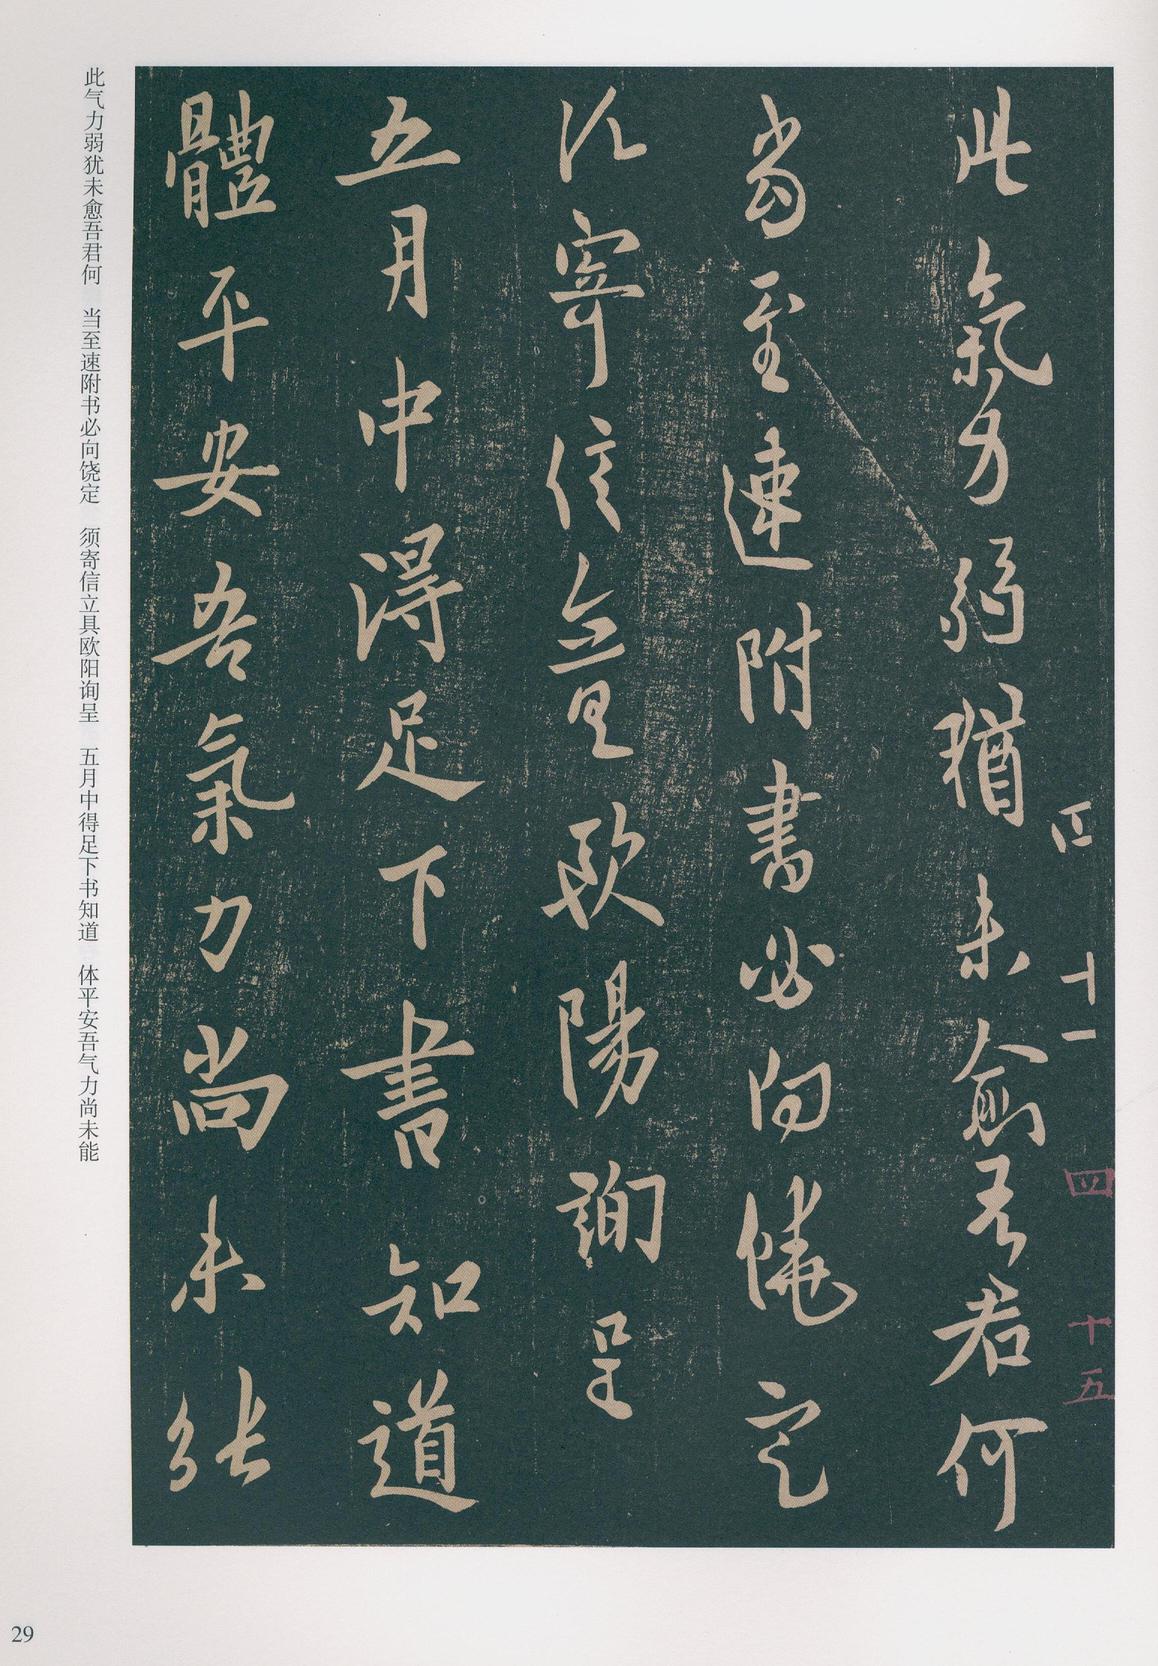 十一
四 十五
此氣力弱猶未愈吾君何
當至速附書必向饒定
須寄信立具歐陽詢呈
五月中得足下書知道
體平安吾氣力尚未能
此气力弱犹未愈吾君何 当至速附书必向饶定 须寄信立具欧阳询呈 五月中得足下书知道 体平安吾气力尚未能
29